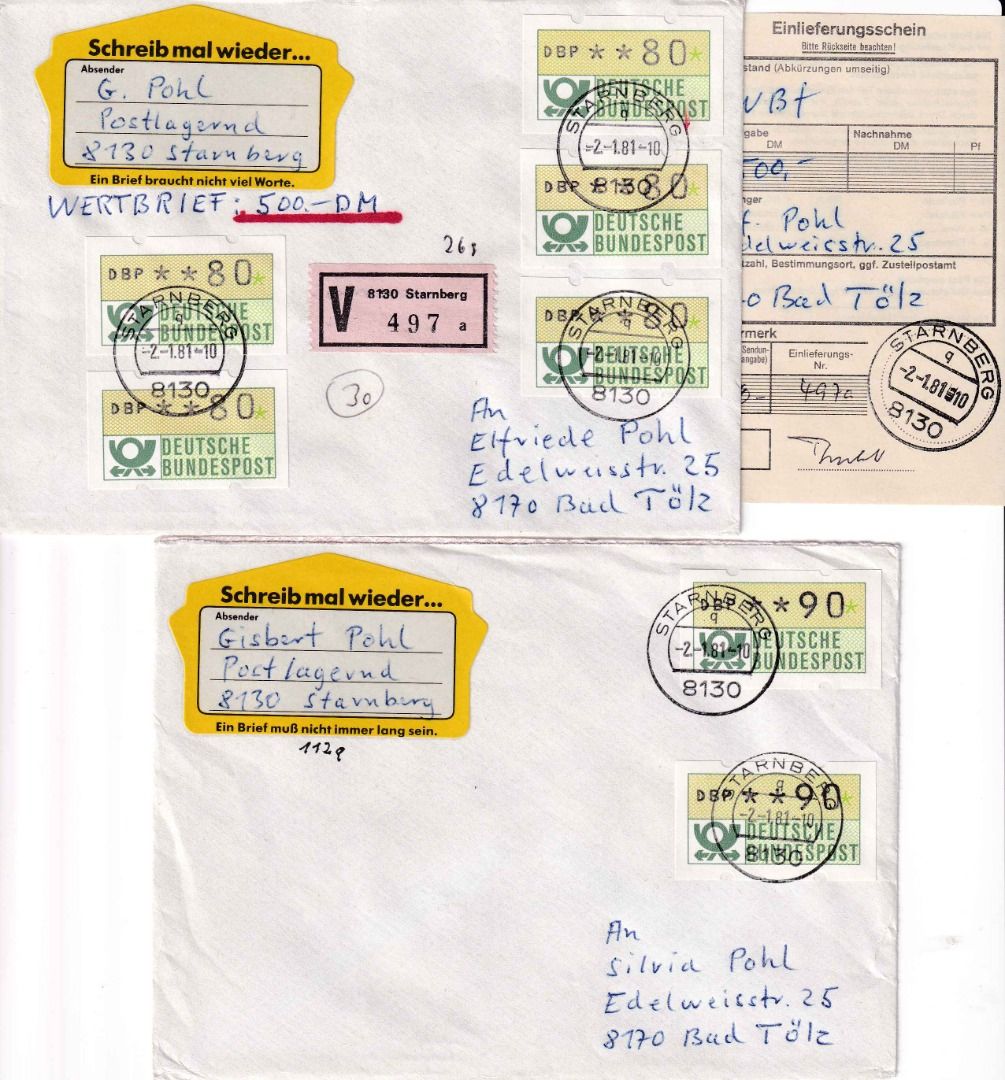 Schreib mal wieder...
Absender
G. Pohl
Postlagernd
8130 Starnberg
Ein Brief braucht nicht viel Worte.
WERTBRIEF: 500.-DM
26g
V 8130 Starnberg
497 a
30
DBP **80*
DEUTSCHE
BUNDESPOST
STARNBERG
q
-2.-1.81-10
8130
DBP **80*
DEUTSCHE
BUNDESPOST
DBP **80*
DEUTSCHE
BUNDESPOST
STARNBERG
q
-2.-1.81-10
8130
DBP **80*
DEUTSCHE
BUNDESPOST
DBP **80*
DEUTSCHE
BUNDESPOST
STARNBERG
q
-2.-1.81-10
8130
An
Elfriede Pohl
Edelweisstr. 25
8170 Bad Tölz
Einlieferungsschein
Bitte Rückseite beachten!
stand (Abkürzungen umseitig)
Nachnahme
DM DM Pf
500,-
Pohl
delweisstr. 25
tzahl, Bestimmungsort, ggf. Zustellpostamt
Bad Tölz
Einlieferungs-
Nr.
497a
STARNBERG
q
-2.-1.81-10
8130
Schreib mal wieder...
Absender
Gisbert Pohl
Postlagernd
8130 Starnberg
Ein Brief muß nicht immer lang sein.
112g
DBP **90*
DEUTSCHE
BUNDESPOST
STARNBERG
q
-2.-1.81-10
8130
DBP **90*
DEUTSCHE
BUNDESPOST
STARNBERG
q
-2.-1.81-10
8130
An
Silvia Pohl
Edelweisstr. 25
8170 Bad Tölz